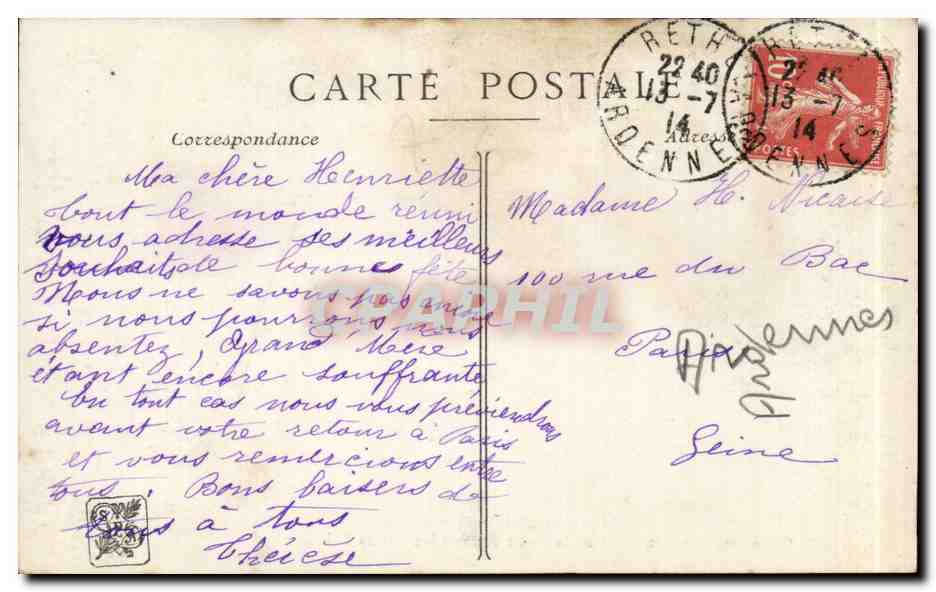 CARTE POSTALE
Correspondance
Adresse
RETH
22 40
13 -7
14
ARDENNES
RET
22 40
13 -7
14
ARDENNES
10
POSTES
Ma chère Henriette
tout le monde réuni
vous adresse ses meilleurs
souhaits de bonne fête
Nous ne savons pas même
si nous pourrons nous
absenter, Grand Mère
étant encore souffrante
En tout cas nous vous préviendrons
avant votre retour à Paris
et vous remercions entre
tous. Bons baisers de
tous à tous
Thérèse
Madame H. Nicaise
100 rue du Bac
Paris
Seine
Ardennes
CPAPHIL